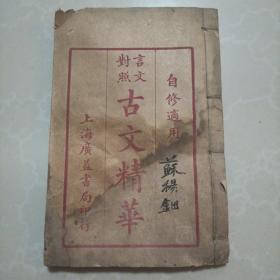 自修適用
言文對照
古文精華
上海廣益書局印行
蘇楊鈿